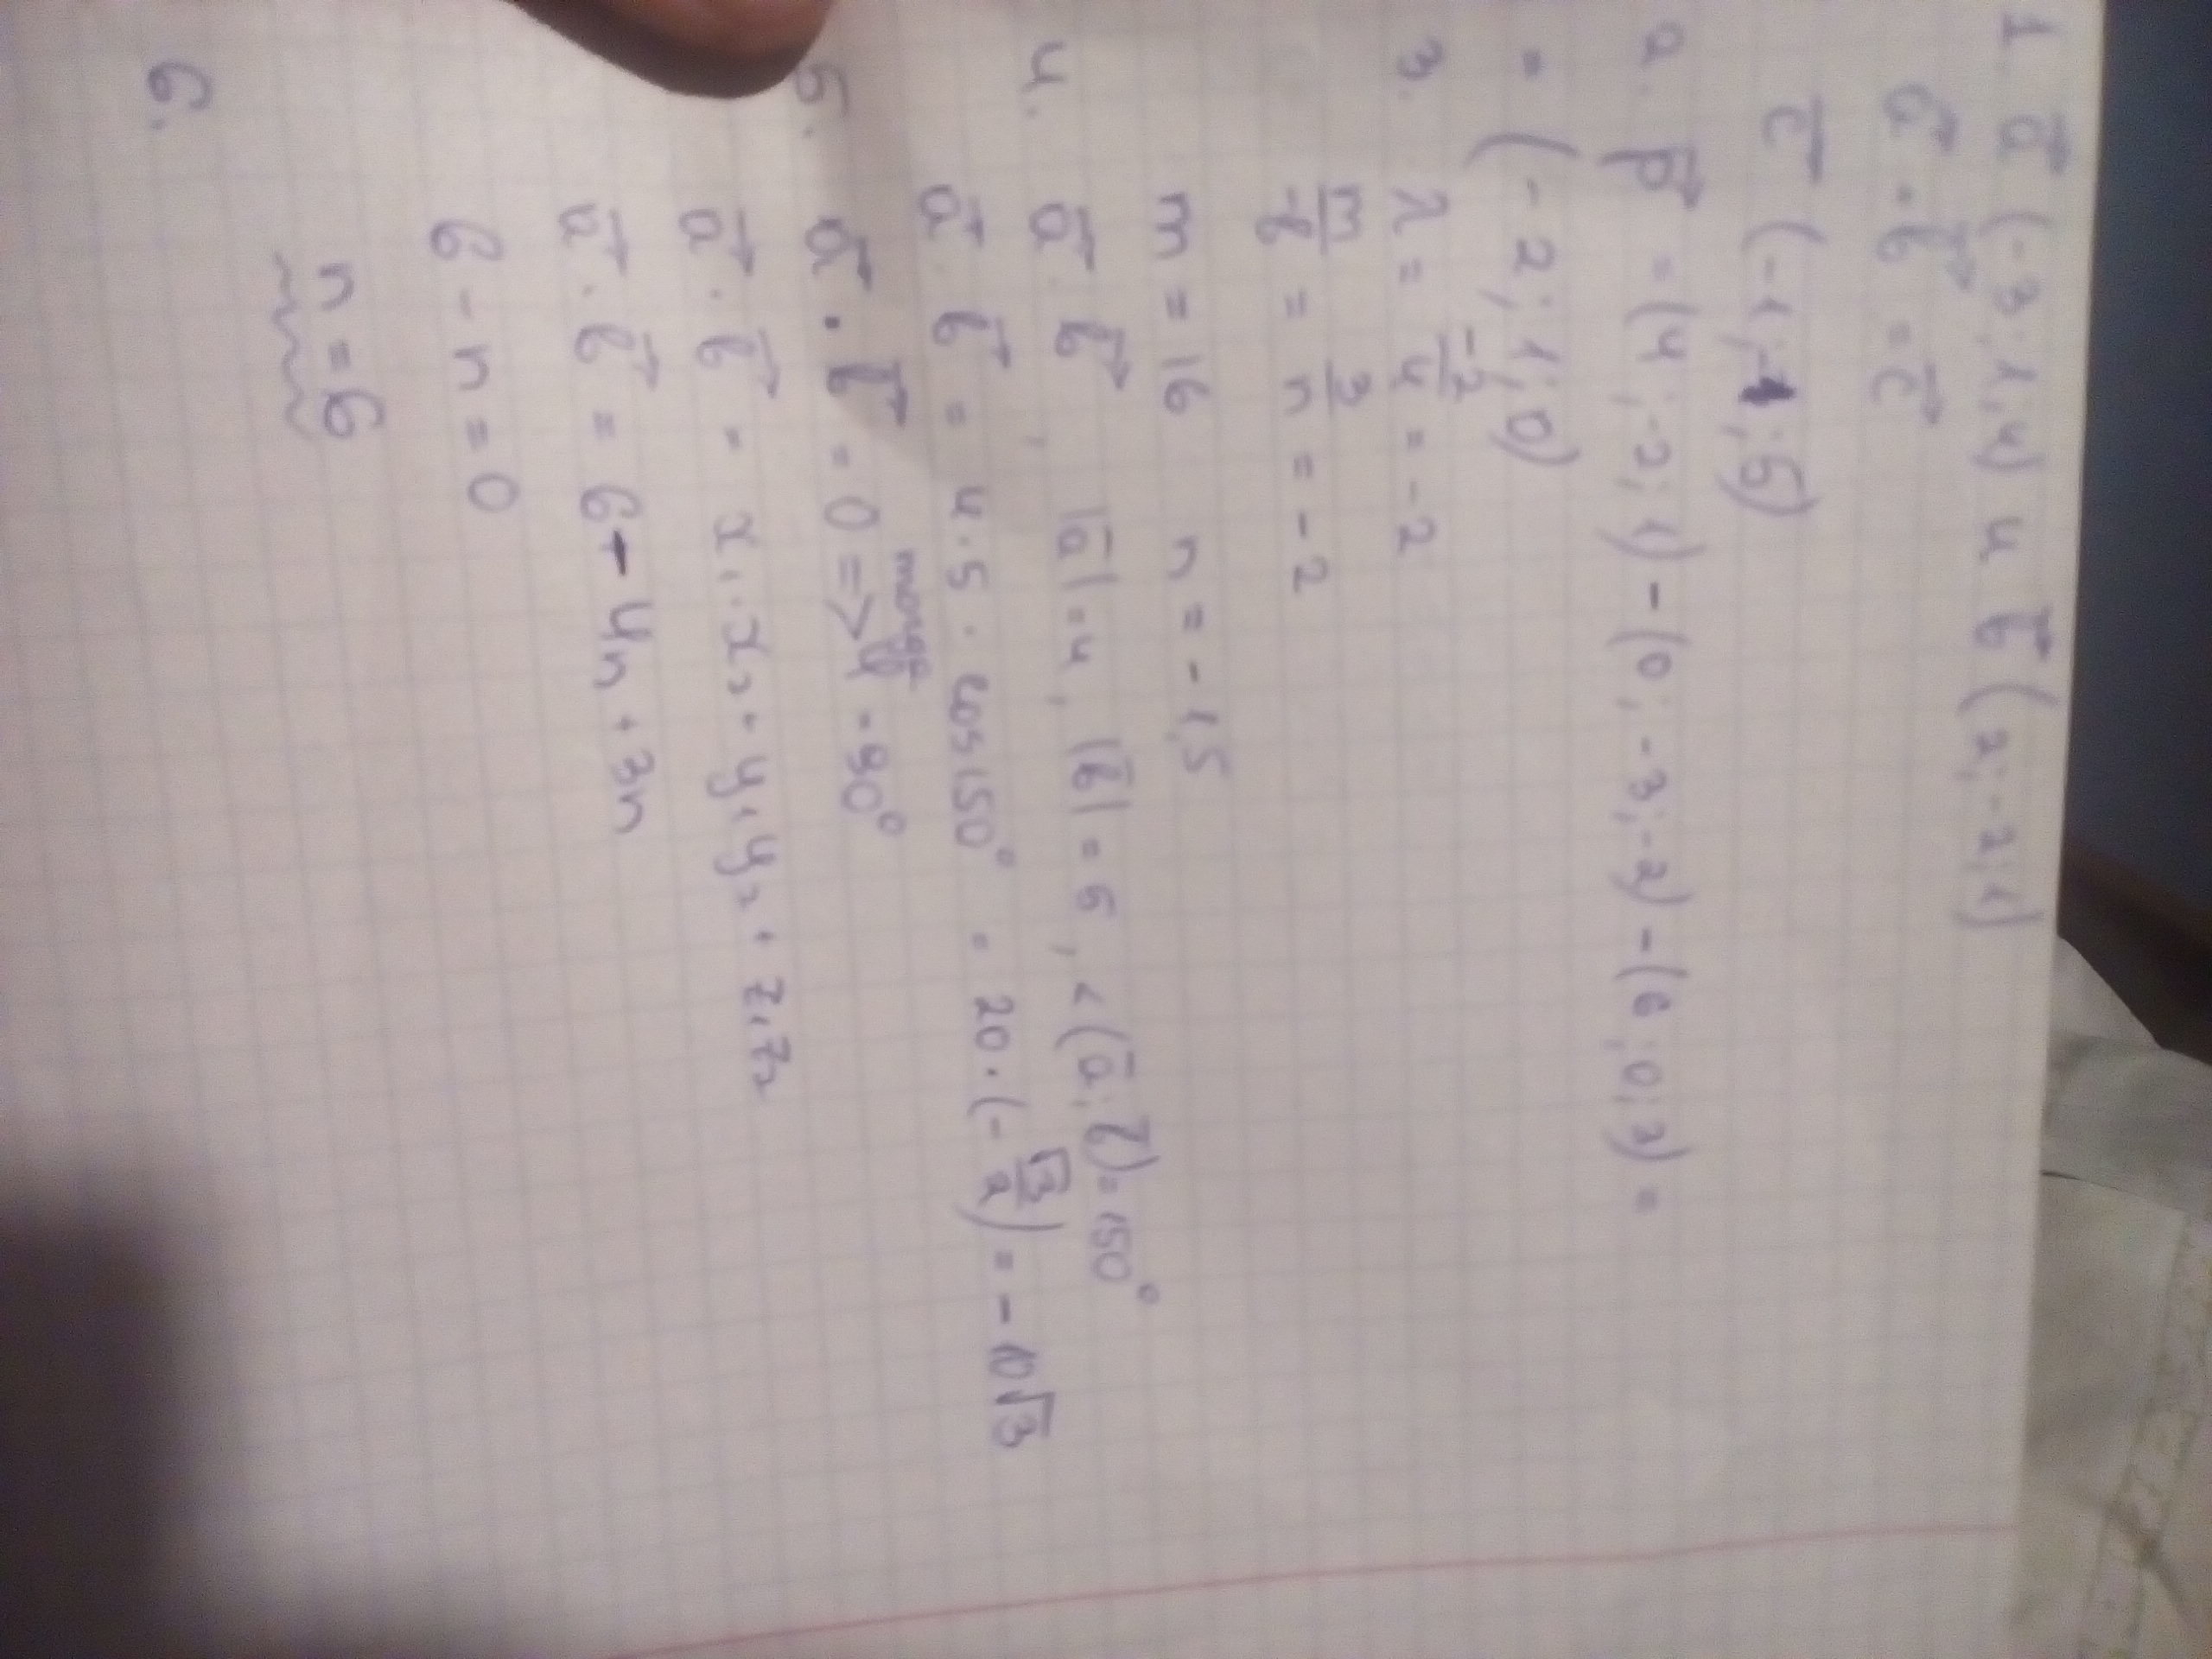 1. a⃗ (-3; 1; 4) и b⃗ (2; -2; 1)
a⃗ + b⃗ = c⃗
c̄ (-1; -1; 5)
2. p⃗ = (4; -2; 1) - (0; -3; -2) - (6; 0; 3) =
= (-2; 1; 0)
3. λ = -2/4 = -2
m/-8 = 3/n = -2
m = 16 n = -1,5
4. a⃗ · b⃗, |ā| = 4, |b̄| = 5, < (ā; b̄) = 150°
a⃗ · b⃗ = 4 · 5 · cos 150° = 20 · (-√3/2) = - 10√3
5. a⃗ · b⃗ = 0 => φ = 90°
a⃗ · b⃗ = x₁ · x₂ + y₁y₂ + z₁z₂
a⃗ · b⃗ = 6 - 4n + 3n
6 - n = 0
n = 6
6.